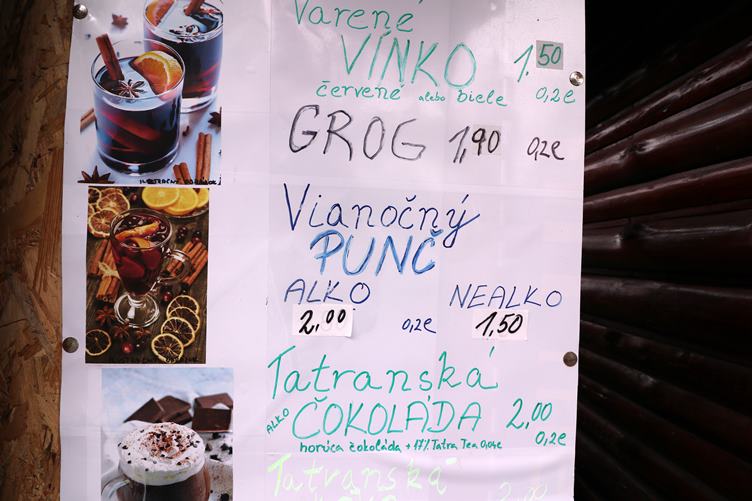 Varené
VÍNKO 1.50
červené alebo biele 0,2l
GROG 1,90 0,2l
ILUSTRAČNÝ OBRÁZOK
Vianočný
PUNČ
ALKO NEALKO
2.00 0,2l 1,50
Tatranská
ALKO ČOKOLÁDA 2,00
0,2l
horúca čokoláda + 17% Tatra Tea 0,04l
Tatranská